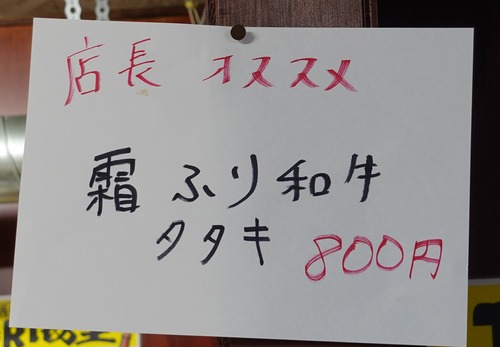 店長 オススメ
霜ふり和牛
タタキ 800円